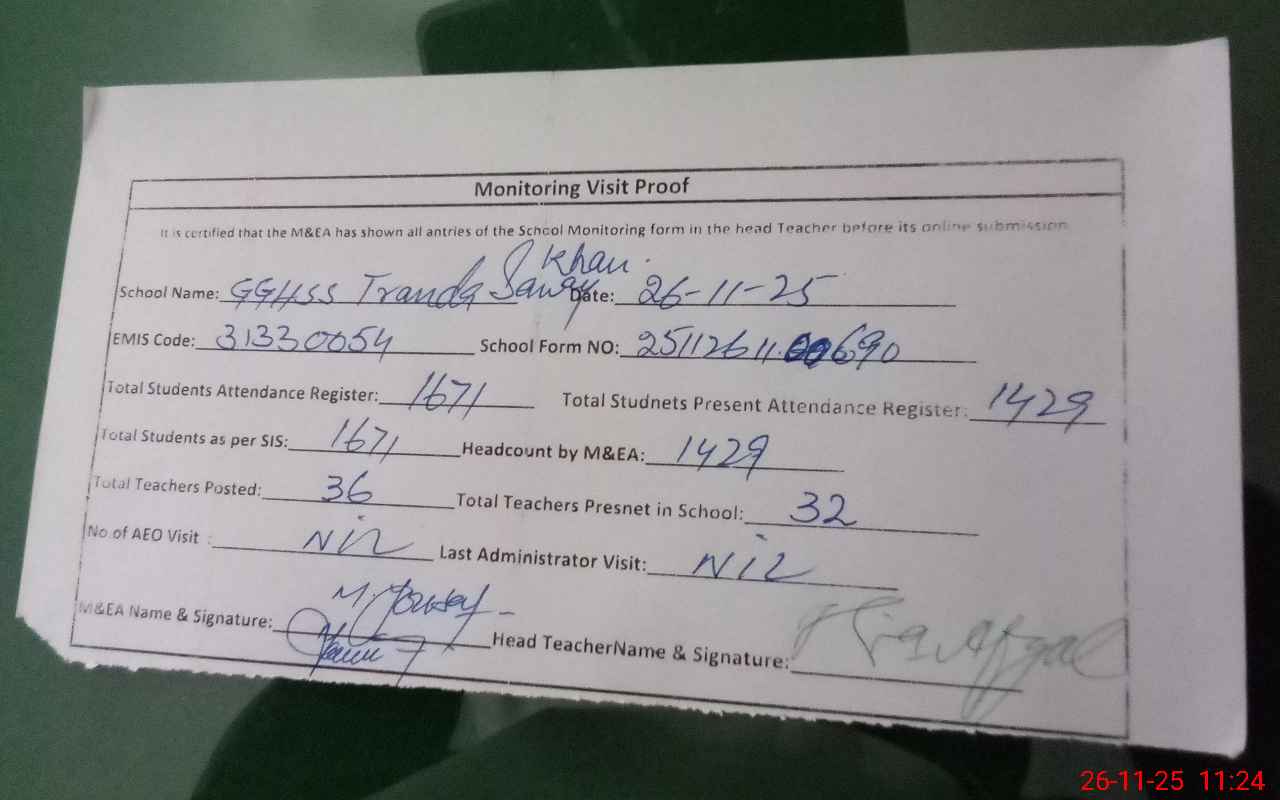 Monitoring Visit Proof
It is certified that the M&EA has shown all antries of the School Monitoring form in the head Teacher before its online submission
Khan.
School Name: GGHSS Tranda Saway Date: 26-11-25
EMIS Code: 31330054 School Form NO: 25112611 00690
Total Students Attendance Register: 1671 Total Studnets Present Attendance Register: 1429
Total Students as per SIS: 1671 Headcount by M&EA: 1429
Total Teachers Posted: 36 Total Teachers Presnet in School: 32
No.of AEO Visit : Nil Last Administrator Visit: Nil
M&EA Name & Signature: M. Head TeacherName & Signature: Afzal
26-11-25 11:24